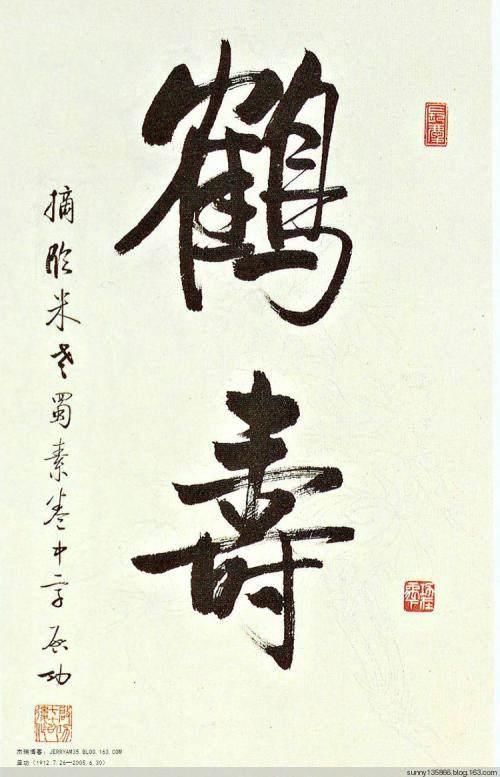 鶴壽
摘臨米老蜀素卷中字 啟功
杰瑞博客：JERRYAM35.BLOG.163.COM
启功（1912.7.26—2005.6.30）
sunny135866.blog.163.com